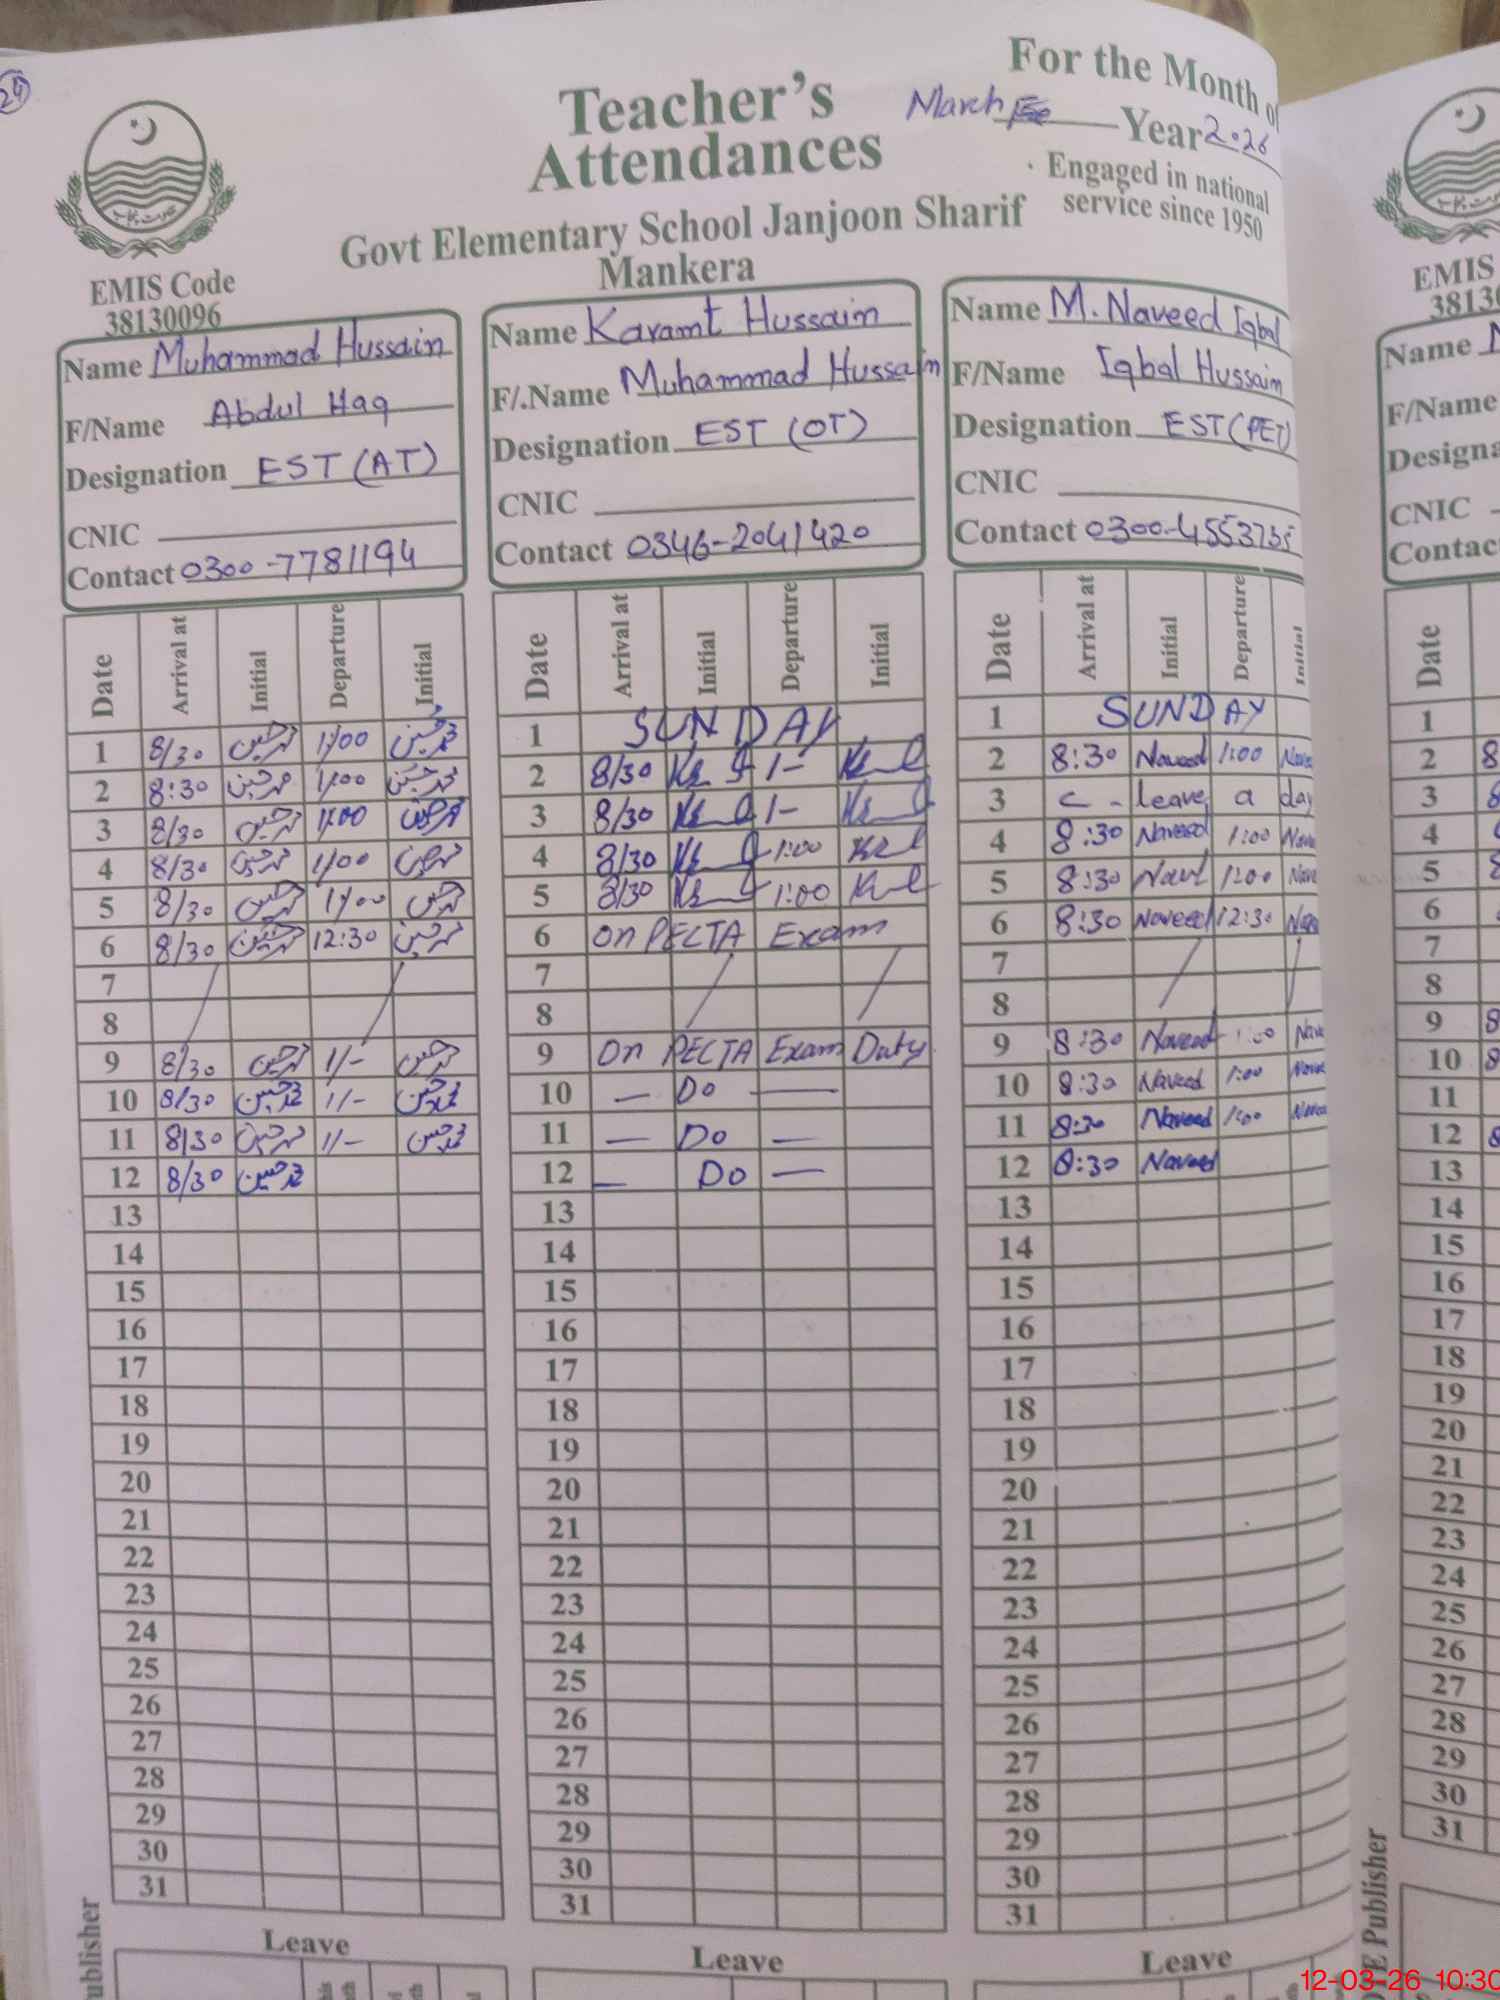 24
Teacher's
Attendances
For the Month of
March
Year 2026
Engaged in national
service since 1950
Govt Elementary School Janjoon Sharif
Mankera
EMIS Code
38130096
Name Muhammad Hussain
F/Name Abdul Haq
Designation EST (AT)
CNIC
Contact 0300-7781194
Date Arrival at Initial Departure Initial
1 8/30 محمد حسین 1/00 محمد حسین
2 8:30 محمد حسین 1/00 محمد حسین
3 8/30 محمد حسین 1/00 محمد حسین
4 8/30 محمد حسین 1/00 محمد حسین
5 8/30 محمد حسین 1/00 محمد حسین
6 8/30 محمد حسین 12:30 محمد حسین
7
8
9 8/30 محمد حسین 1/- محمد حسین
10 8/30 محمد حسین 1/- محمد حسین
11 8/30 محمد حسین 1/- محمد حسین
12 8/30 محمد حسین
13
14
15
16
17
18
19
20
21
22
23
24
25
26
27
28
29
30
31
Leave
Name Karamt Hussain
F/.Name Muhammad Hussain
Designation EST (OT)
CNIC
Contact 0346-2041420
Date Arrival at Initial Departure Initial
1 SUNDAY
2 8/30 1-
3 8/30 1-
4 8/30 1:00
5 8/30 1:00
6 On PECTA Exam
7
8
9 On PECTA Exam Duty
10 — Do —
11 — Do —
12 — Do —
13
14
15
16
17
18
19
20
21
22
23
24
25
26
27
28
29
30
31
Leave
Name M. Naveed Iqbal
F/Name Iqbal Hussain
Designation EST (PET)
CNIC
Contact 0300-4553735
Date Arrival at Initial Departure Initial
1 SUNDAY
2 8:30 Naveed 1:00
3 C - leave a day
4 8:30 Naveed 1:00
5 8:30 1:00
6 8:30 Naveed 12:30
7
8
9 8:30 Naveed 1:00
10 8:30 Naveed 1:00
11 8:30 Naveed 1:00
12 8:30 Naveed
13
14
15
16
17
18
19
20
21
22
23
24
25
26
27
28
29
30
31
Leave
EMIS
Name
F/Name
CNIC
Date
1
2 8
3 8
4
5 8
6
7
8
9 8
10 8
11
12 8
13
14
15
16
17
18
19
20
21
22
23
24
25
26
27
28
29
30
31
Publisher
12-03-26 10:30